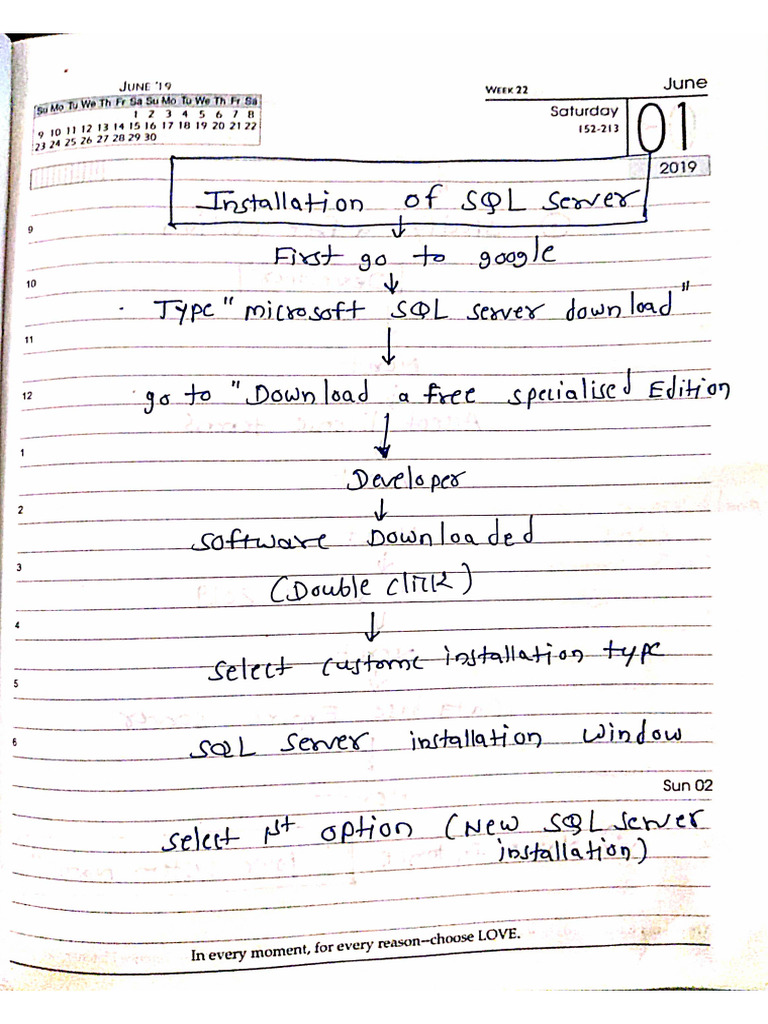 JUNE '19
Su Mo Tu We Th Fr Sa Su Mo Tu We Th Fr Sa
1 2 3 4 5 6 7 8
9 10 11 12 13 14 15 16 17 18 19 20 21 22
23 24 25 26 27 28 29 30
WEEK 22
June
Saturday
152-213
01
2019
Installation of SQL Server
9
First go to google
10
Type "microsoft SQL server download"
11
12
go to "Download a free specialised Edition
1
Developer
2
software Downloaded
3
(Double click)
4
select custome installation type
5
6
SQL server installation window
Sun 02
select 1st option (New SQL server
installation)
In every moment, for every reason–choose LOVE.